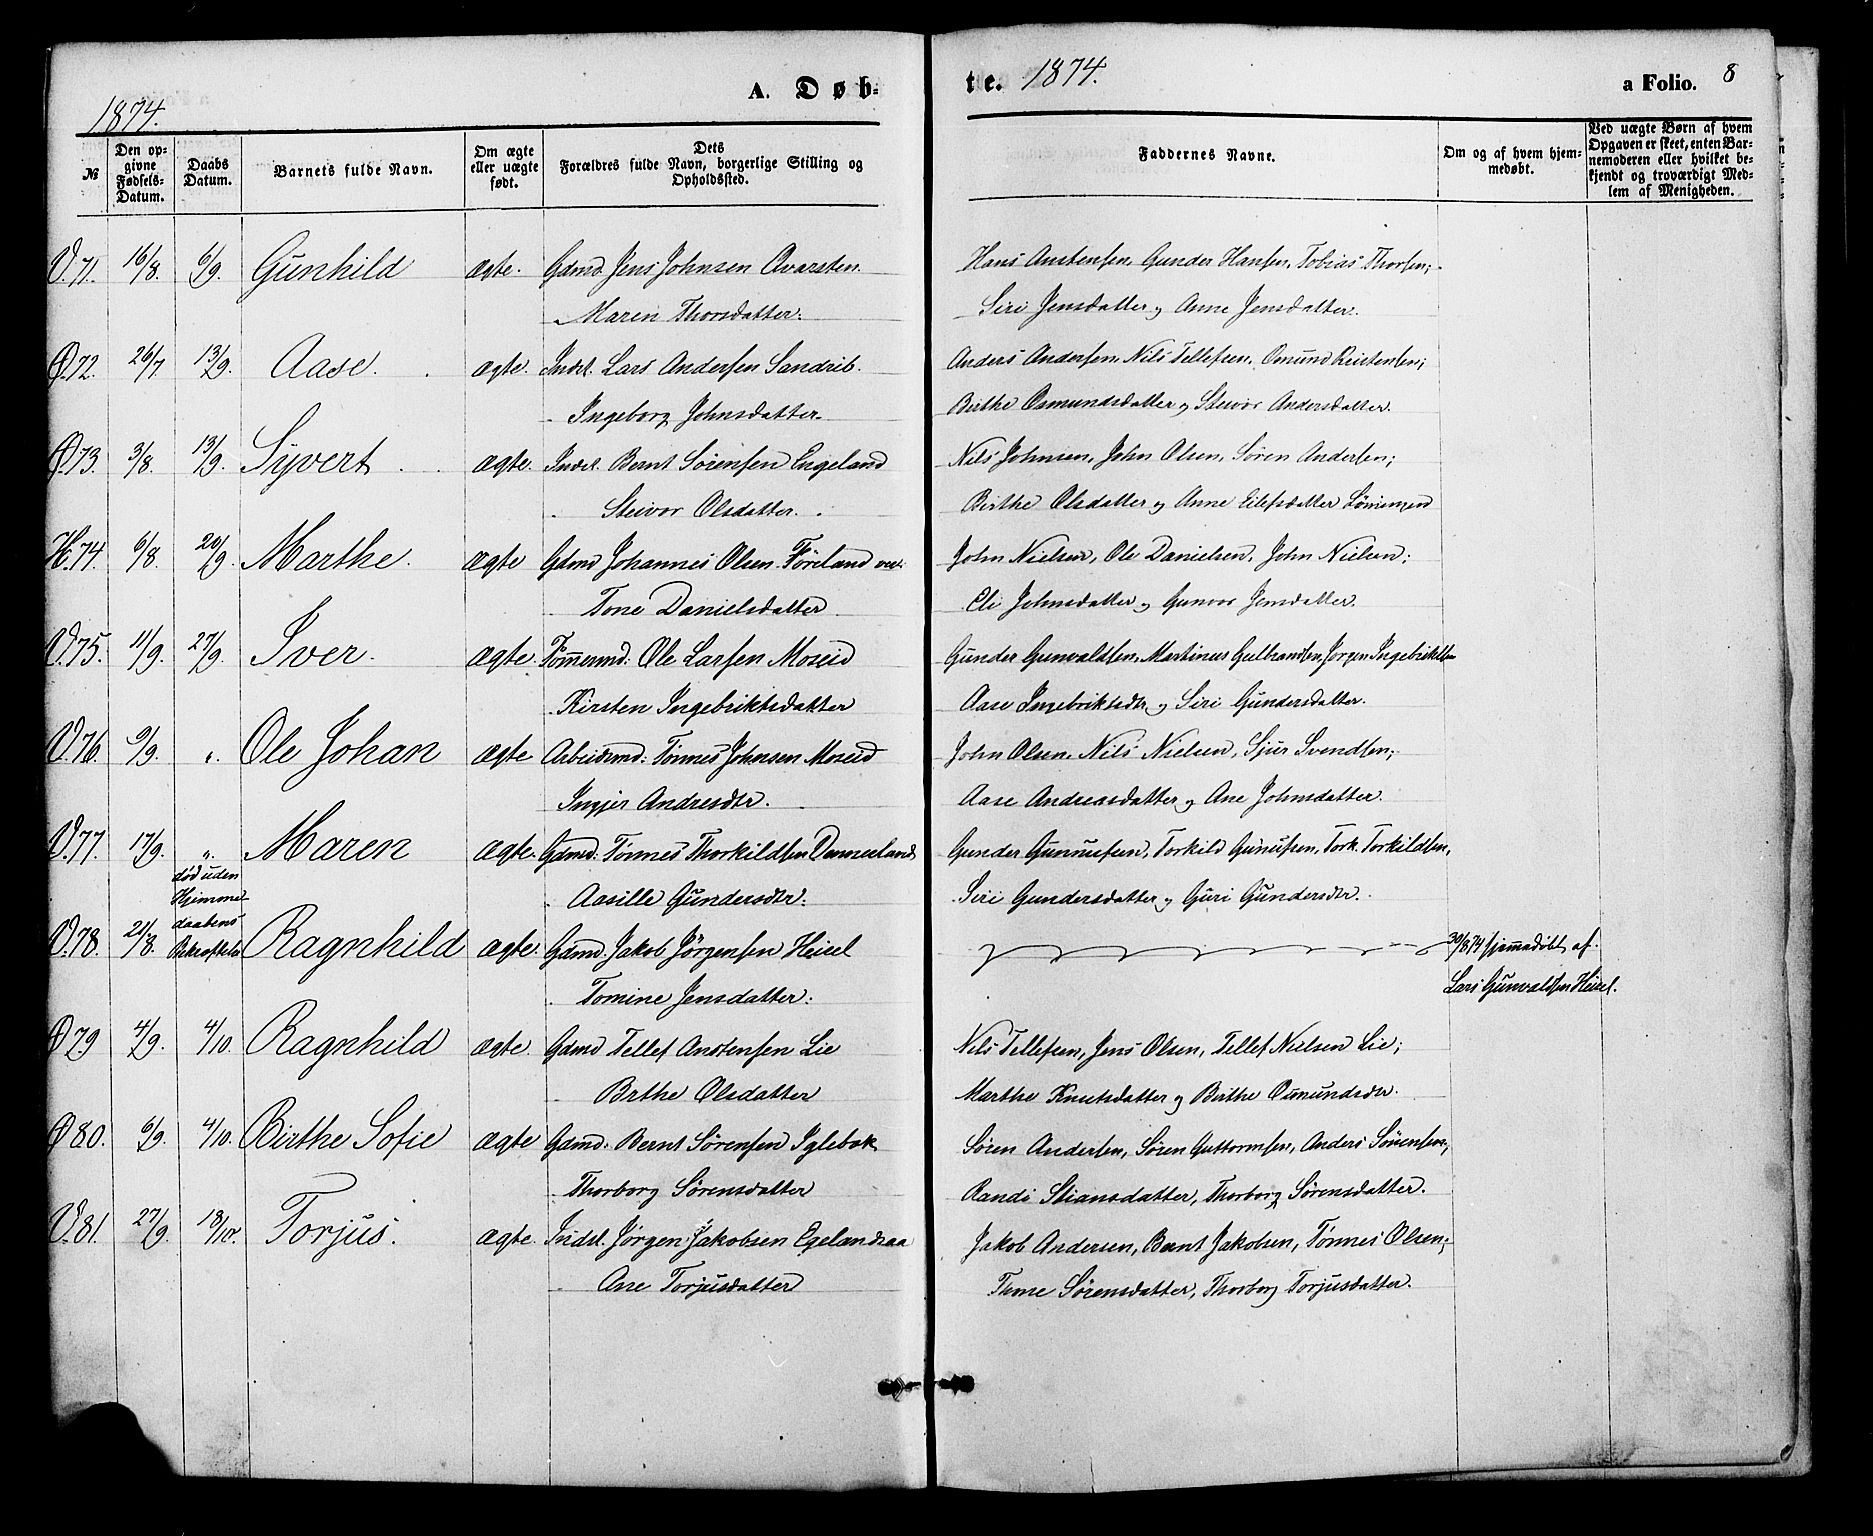 1874. A. Døb-
№ Den opgivne Fødsels-Datum. Daabs Datum. Barnets fulde Navn. Om ægte eller uægte født. Dets Forældres fulde Navn, borgerlige Stilling og Opholdssted.
V.71. 16/8. 6/9. Gunhild ægte. Gdmd. Jens Johnsen Qvarsten.
Maren Thorsdatter.
Ø.72. 26/7. 13/9. Aase. ægte. Indst. Lars Andersen Sandrib.
Ingeborg Johnsdatter.
Ø.73. 3/8. 13/9. Syvert ægte. Indst. Bernt Sørensen Engeland
Steivor Olsdatter.
H.74. 6/8. 20/9. Marthe. ægte Gdmd Johannes Olsen Føreland
Tone Danielsdatter
V.75. 11/9. 27/9. Iver. ægte. Tømermd: Ole Larsen Moseid
Kirsten Ingebriktsdatter
V.76. 9/9. „. Ole Johan ægte Arbeidsmd: Tønnes Johnsen Moseid
Ingjer Andresdtr.
V.77. 17/9. „. Maren ægte. Gdmd: Tønnes Thorkildsen Dønneland
Aasille Gundersdtr.
død uden
Hjemme
daabens
Bekræftelse
V.78. 21/8. Ragnhild ægte. Gdmd. Jakob Jørgensen Heisel
Tomine Jensdatter.
Ø 79 4/9. 4/10. Ragnhild ægte. Gdmd Tellef Anstensen Lie
Birthe Olsdatter
Ø 80. 6/9. 4/10. Birthe Sofie ægte Gdmd: Bernt Sørensen Iglebæk
Thorborg Sørensdatter
V.81. 27/9. 18/10. Torjus. ægte. Indst. Jørgen Jakobsen Egelandsaa
Ane Torjusdatter
te. 1874. a Folio. 8
Faddernes Navne. Om og af hvem hjemmedøbt. Ved uægte Børn af hvem Opgaven er skeet, enten Barnemoderen eller hvilket bekjendt og troværdigt Medlem af Menigheden.
Hans Anstensen, Gunder Hansen, Tobias Thorsen;
Siri Jensdatter og Anne Jensdatter.
Anders Andersen, Nils Tellefsen, Omund Kristensen;
Birthe Osmundsdatter og Steivor Andersdatter.
Nils Johnsen, John Olsen, Søren Andersen;
Birthe Olsdatter og Anne Eilefsdatter
John Nielsen, Ole Danielsen, John Nielsen;
Eli Johnsdatter og Gunvor Jensdatter.
Gunder Gunvaldsen, Martinus Gulbrandsen, Jørgen Ingebriktsen
Aase Ingebriktsdtr og Siri Gundersdatter.
John Olsen, Nils Nielsen, Sjur Svendsen;
Aase Andreasdatter og Ane Johnsdatter.
Gunder Gunnufsen, Torkild Gunufsen, Tork. Torkildsen,
Siri Gundersdatter og Guri Gundersdtr.
30/8 74 hjemmedøbt af
Lars Gunvaldsen Heisel.
Nils Tellefsen, Jens Olsen, Tellef Nielsen Lie;
Marthe Knutsdatter og Birthe Osmundsdtr.
Søren Andersen, Søren Guttormsen, Anders Sørensen;
Randi Stiansdatter, Thorborg Sørensdatter.
Jakob Andersen, Bernt Jakobsen, Tønnes Olsen;
Thone Sørensdatter, Thorborg Torjusdatter.